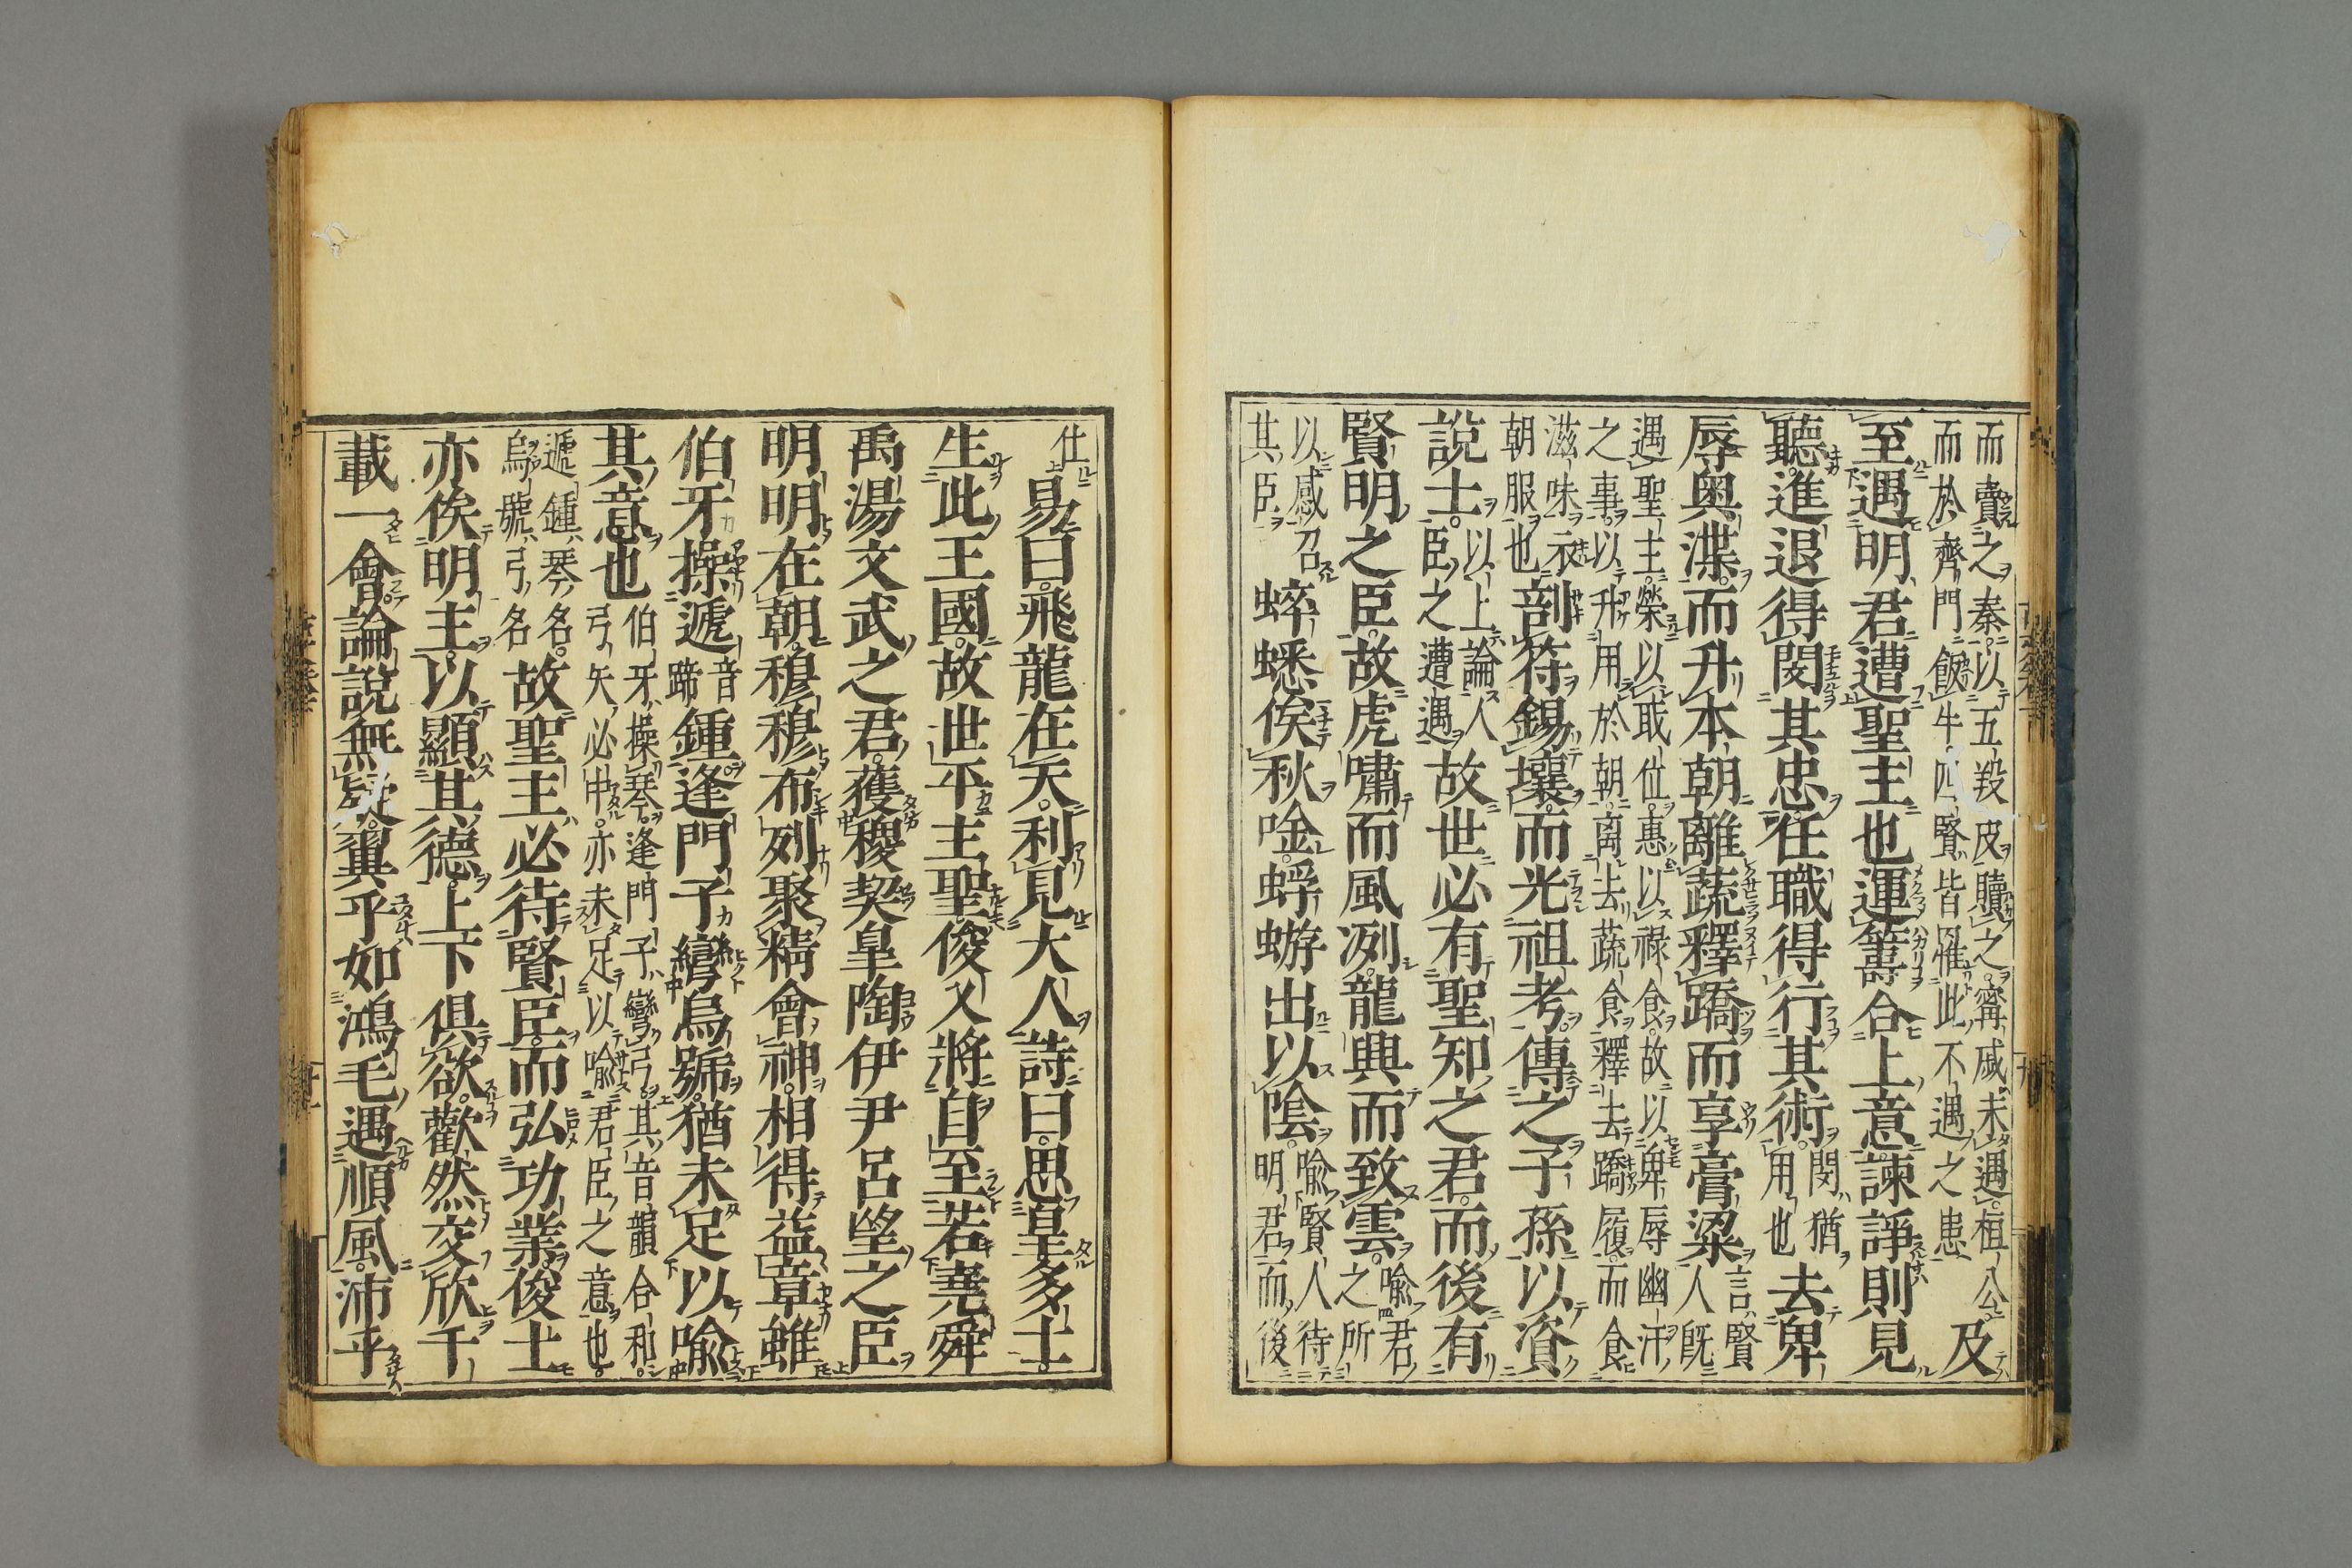 而賣之秦以五羖皮贖之。甯戚未遇。桓公。
而於齊門飯牛。四賢皆罹此不遇之患
及
至遇明君遭聖主也運籌合上意諫諍則見
聽進退得閔其忠任職得行其術。
閔猶
用也
去卑
辱奥渫。而升本朝離蔬釋蹻而享膏粱
言賢
人既
遇聖主。榮以取位。惠以祿食。故以卑辱幽汗
之事。以升用於朝。离去蔬食釋去蹻履。而食
滋味衣
朝服也
剖符錫壤。而光祖考。傳之子孫以資
說士。
以上論人
臣之遭遇
故世必有聖知之君。而後有
賢明之臣。故虎嘯而風冽。龍興而致雲。
喻君
之所
以感召
其臣
蟀蟋俟秋唫。蜉蝣出以陰。
喻賢人待
明君而後
仕
易曰。飛龍在天。利見大人詩曰。思皇多士。
生此王國。故世平主聖俊乂將自至若堯舜
禹湯文武之君。獲稷契皐陶伊尹呂望之臣
明明在朝。穆穆布列聚精會神。相得益章雖
伯牙操遞
音
蹄
鍾。逢門子彎烏號。猶未足以喻
其意也
伯牙操琴。逢門子彎弓。其音韻合和。
弓矢必中。亦未足以喻君臣之意也。
遞鍾琴名。
烏號弓名
故聖主必待賢臣。而弘功業。俊士
亦俟明主。以顯其德。上下俱欲。歡然交欣千
載一會。論說無疑。翼乎如鴻毛遇順風。沛乎